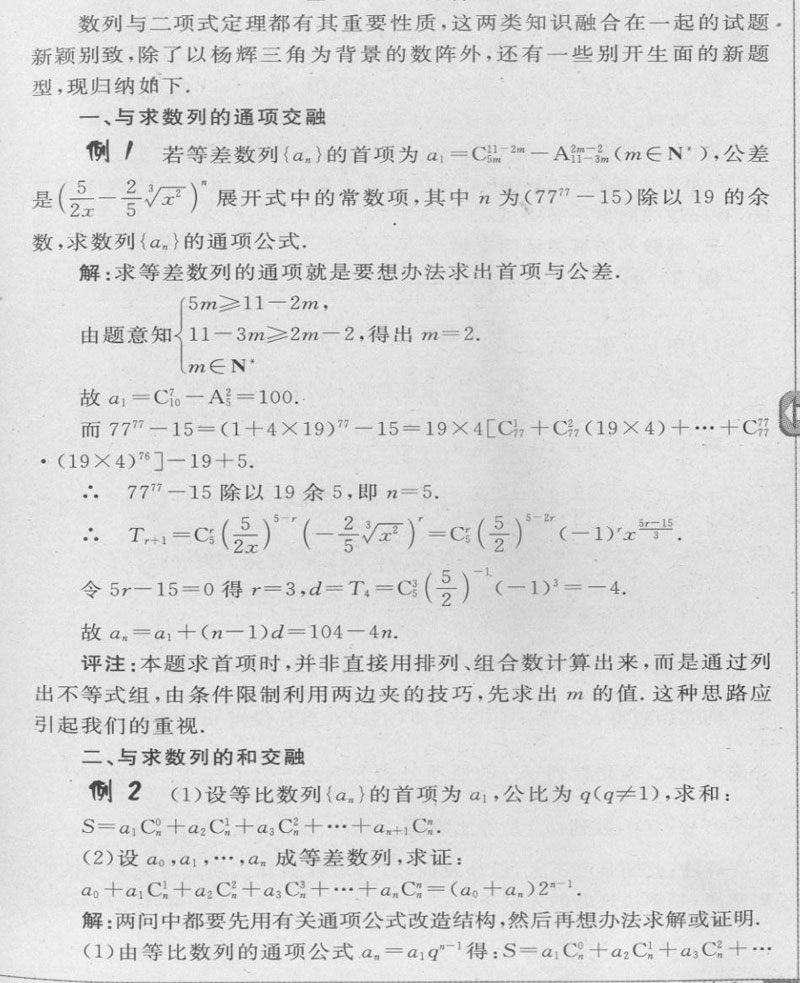 数列与二项式定理都有其重要性质,这两类知识融合在一起的试题
新颖别致,除了以杨辉三角为背景的数阵外,还有一些别开生面的新题
型,现归纳如下.
一、与求数列的通项交融
例1 若等差数列{aₙ}的首项为 a₁=C_{5m}^{11-2m}-A_{11-3m}^{2m-2}(m∈N*),公差
是(5/(2x)-(2/5)∛(x²))ⁿ 展开式中的常数项,其中 n 为(77⁷⁷-15)除以 19 的余
数,求数列{aₙ}的通项公式.
解:求等差数列的通项就是要想办法求出首项与公差.
由题意知{5m≥11-2m,
11-3m≥2m-2,得出 m=2.
m∈N*
故 a₁=C_{10}^{7}-A_{5}^{2}=100.
而 77⁷⁷-15=(1+4×19)⁷⁷-15=19×4[C_{77}^{1}+C_{77}^{2}(19×4)+…+C_{77}^{77}
·(19×4)⁷⁶]-19+5.
∴ 77⁷⁷-15 除以 19 余 5,即 n=5.
∴ T_{r+1}=C_{5}^{r}(5/(2x))^{5-r}(-(2/5)∛(x²))^{r}=C_{5}^{r}(5/2)^{5-2r}(-1)^{r}x^{(5r-15)/3}.
令 5r-15=0 得 r=3,d=T₄=C_{5}^{3}(5/2)^{-1}(-1)³=-4.
故 aₙ=a₁+(n-1)d=104-4n.
评注:本题求首项时,并非直接用排列、组合数计算出来,而是通过列
出不等式组,由条件限制利用两边夹的技巧,先求出 m 的值.这种思路应
引起我们的重视.
二、与求数列的和交融
例2 (1)设等比数列{aₙ}的首项为 a₁,公比为 q(q≠1),求和:
S=a₁C_{n}^{0}+a₂C_{n}^{1}+a₃C_{n}^{2}+…+a_{n+1}C_{n}^{n}.
(2)设 a₀,a₁,…,aₙ 成等差数列,求证:
a₀+a₁C_{n}^{1}+a₂C_{n}^{2}+a₃C_{n}^{3}+…+aₙC_{n}^{n}=(a₀+aₙ)2^{n-1}.
解:两问中都要先用有关通项公式改造结构,然后再想办法求解或证明.
(1)由等比数列的通项公式 aₙ=a₁q^{n-1}得:S=a₁C_{n}^{0}+a₂C_{n}^{1}+a₃C_{n}^{2}+…